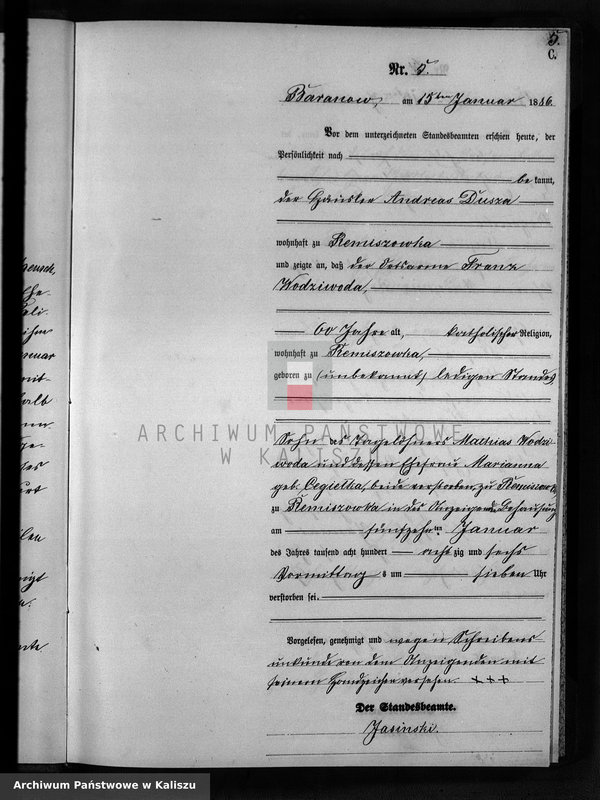 5.
C.
Nr. 5.
Baranow, am 15ten Januar 1886.
Vor dem unterzeichneten Standesbeamten erschien heute, der
Persönlichkeit nach
bekannt,
der Häusler Andreas Dusza
wohnhaft zu Remiszowka
und zeigte an, daß der Ortsarme Franz
Wodziwoda,
60 Jahre alt, katholischer Religion,
wohnhaft zu Remiszowka,
geboren zu (unbekannt) ledigen Standes
Sohn des Tagelöhners Mathias Wodzi-
woda und dessen Ehefrau Marianna
geb. Cegielka, beide verstorben zu Remiszowka
zu Remiszowka in des Anzeigenden Behausung
am fünfzehnten Januar
des Jahres tausend acht hundert achtzig und sechs
Vormittags um sieben Uhr
verstorben sei.
Vorgelesen, genehmigt und wegen Schreibens
unkunde von dem Anzeigenden mit
seinem Handzeichen versehen. +++
Der Standesbeamte.
Jasinski.
ARCHIWUM PAŃSTWOWE
W KALISZU
Archiwum Państwowe w Kaliszu